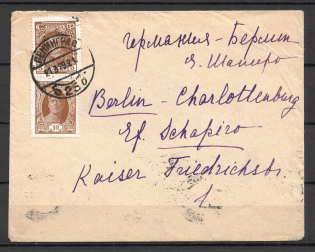 ЛЕНИНГРАД
Германия - Берлин
я. Шапиро
Berlin - Charlottenburg
Ef. Schapiro
Kaiser Friedrichstr.
1